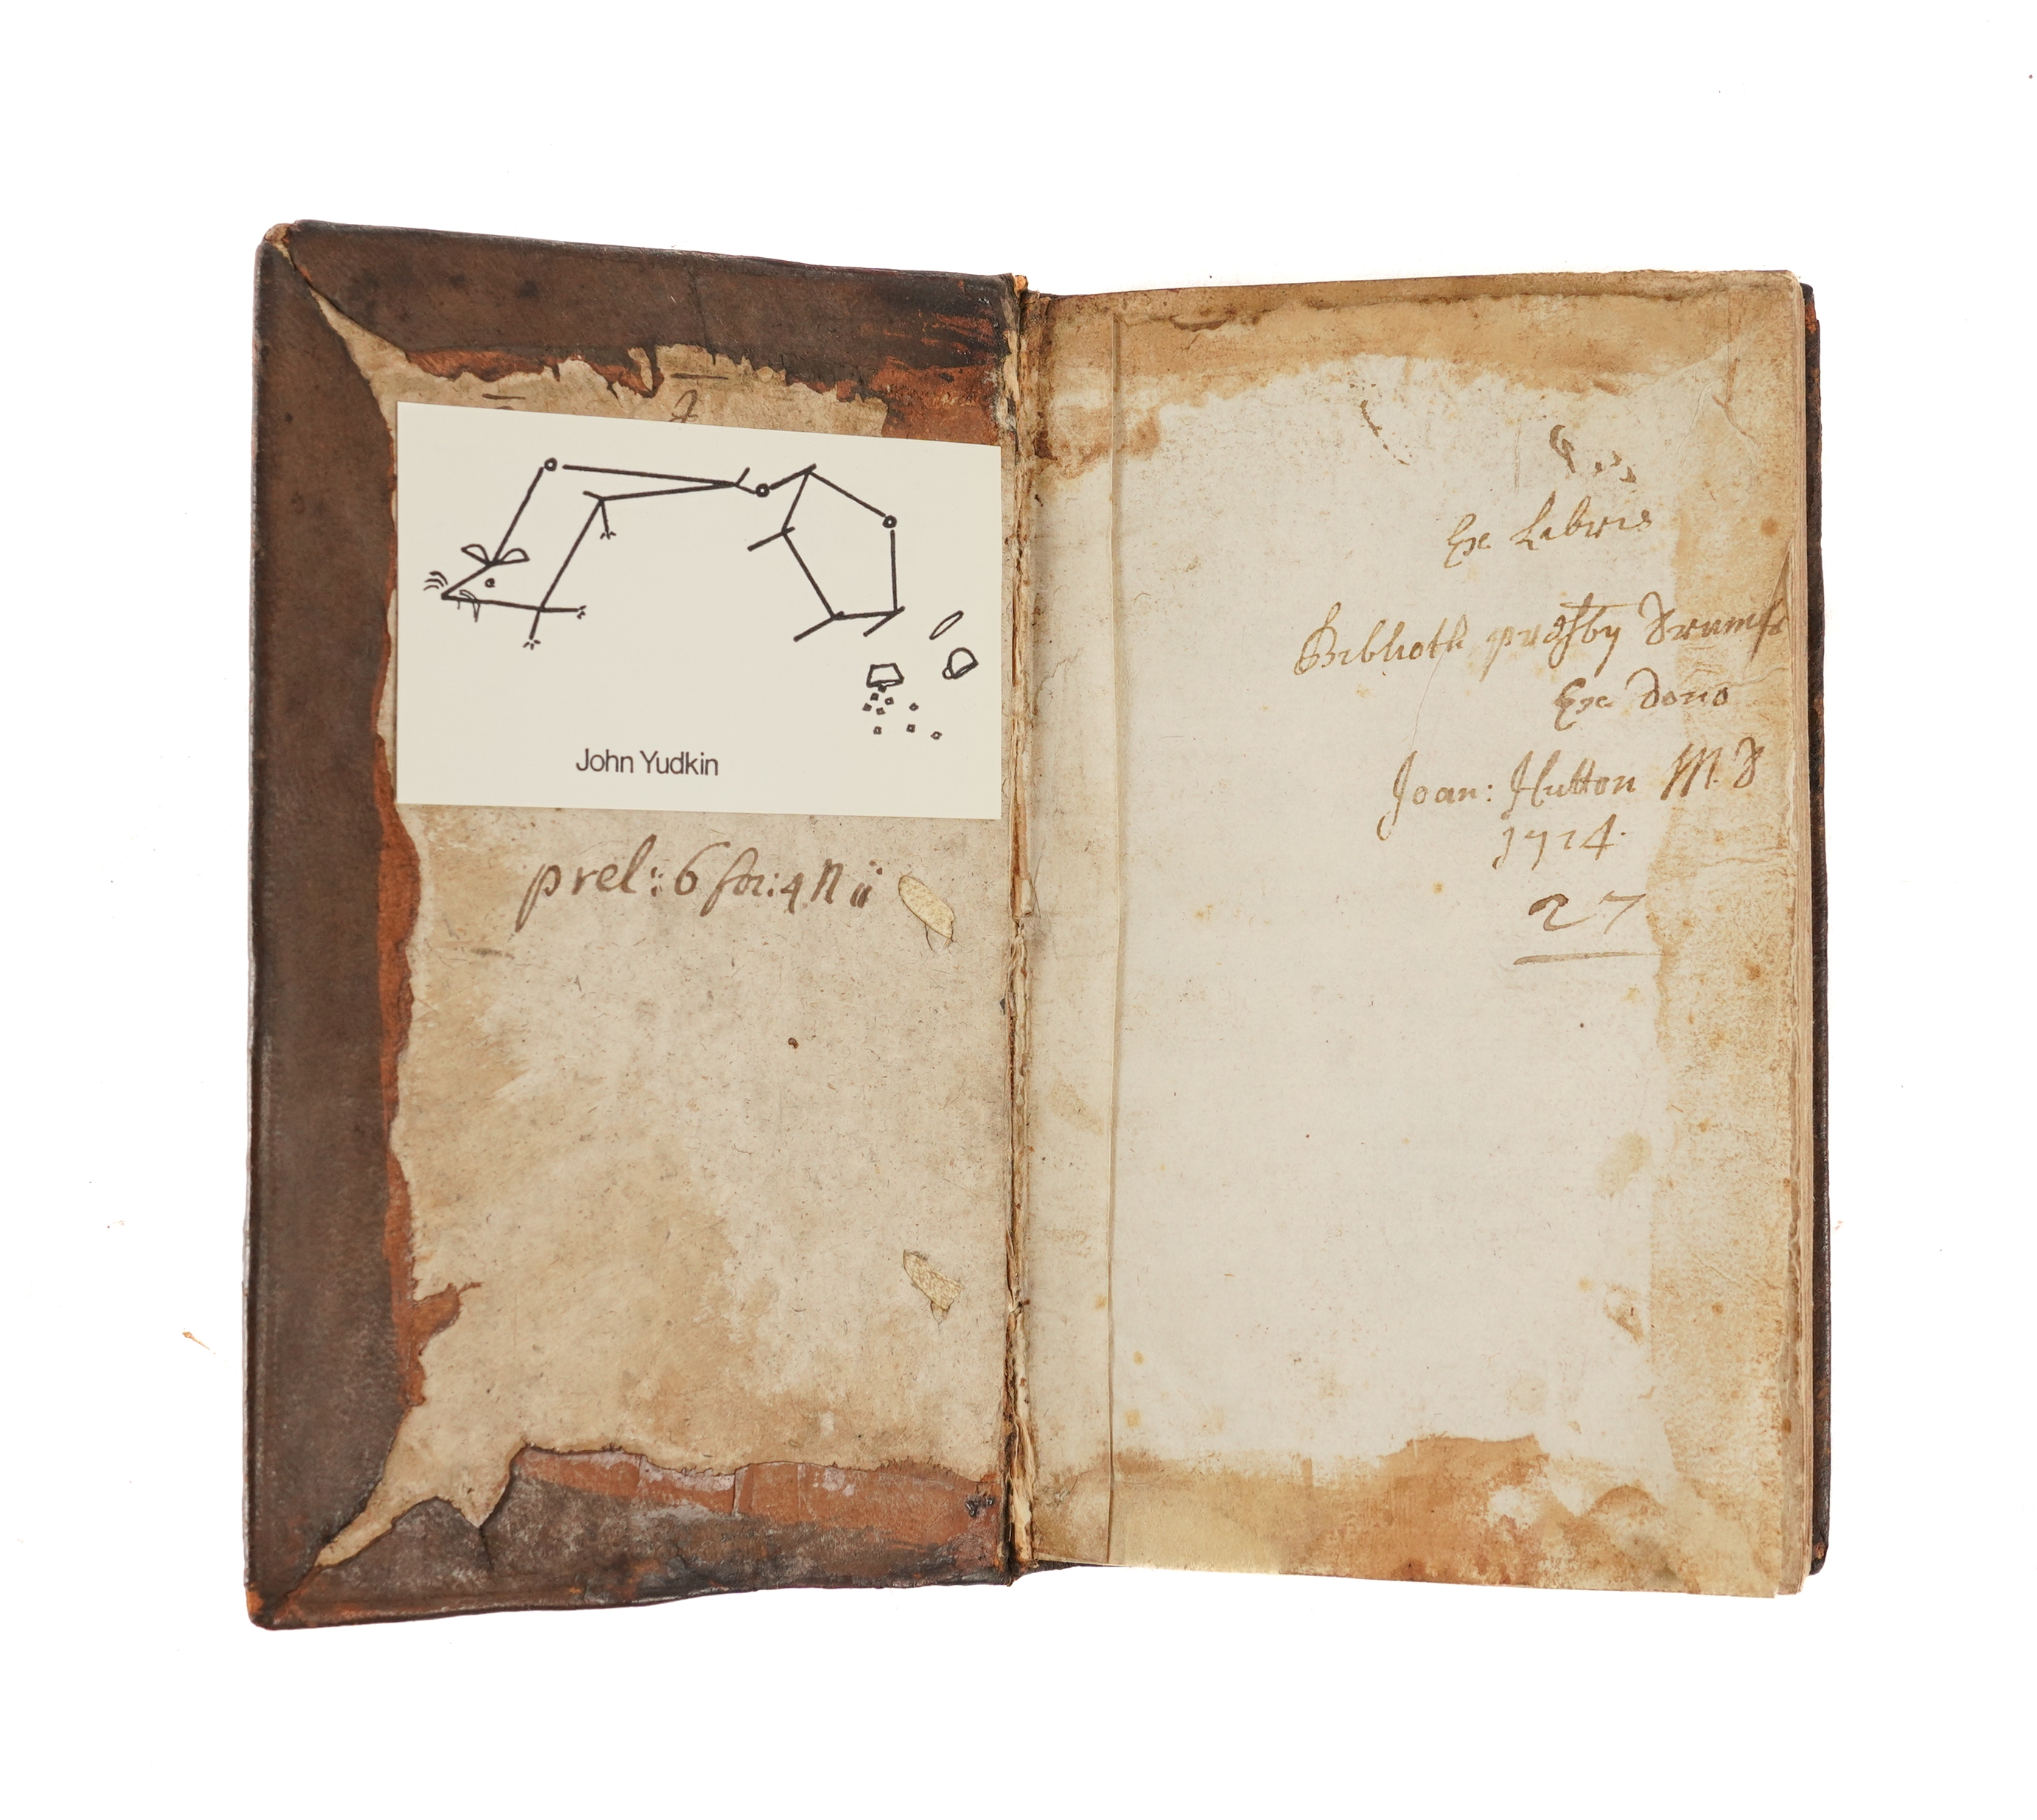 John Yudkin
prel: 6 for: 4 N ii
Ex Libris
Biblioth presby Drumfr
Ex dono
Joan: Hutton M.D
1714.
27